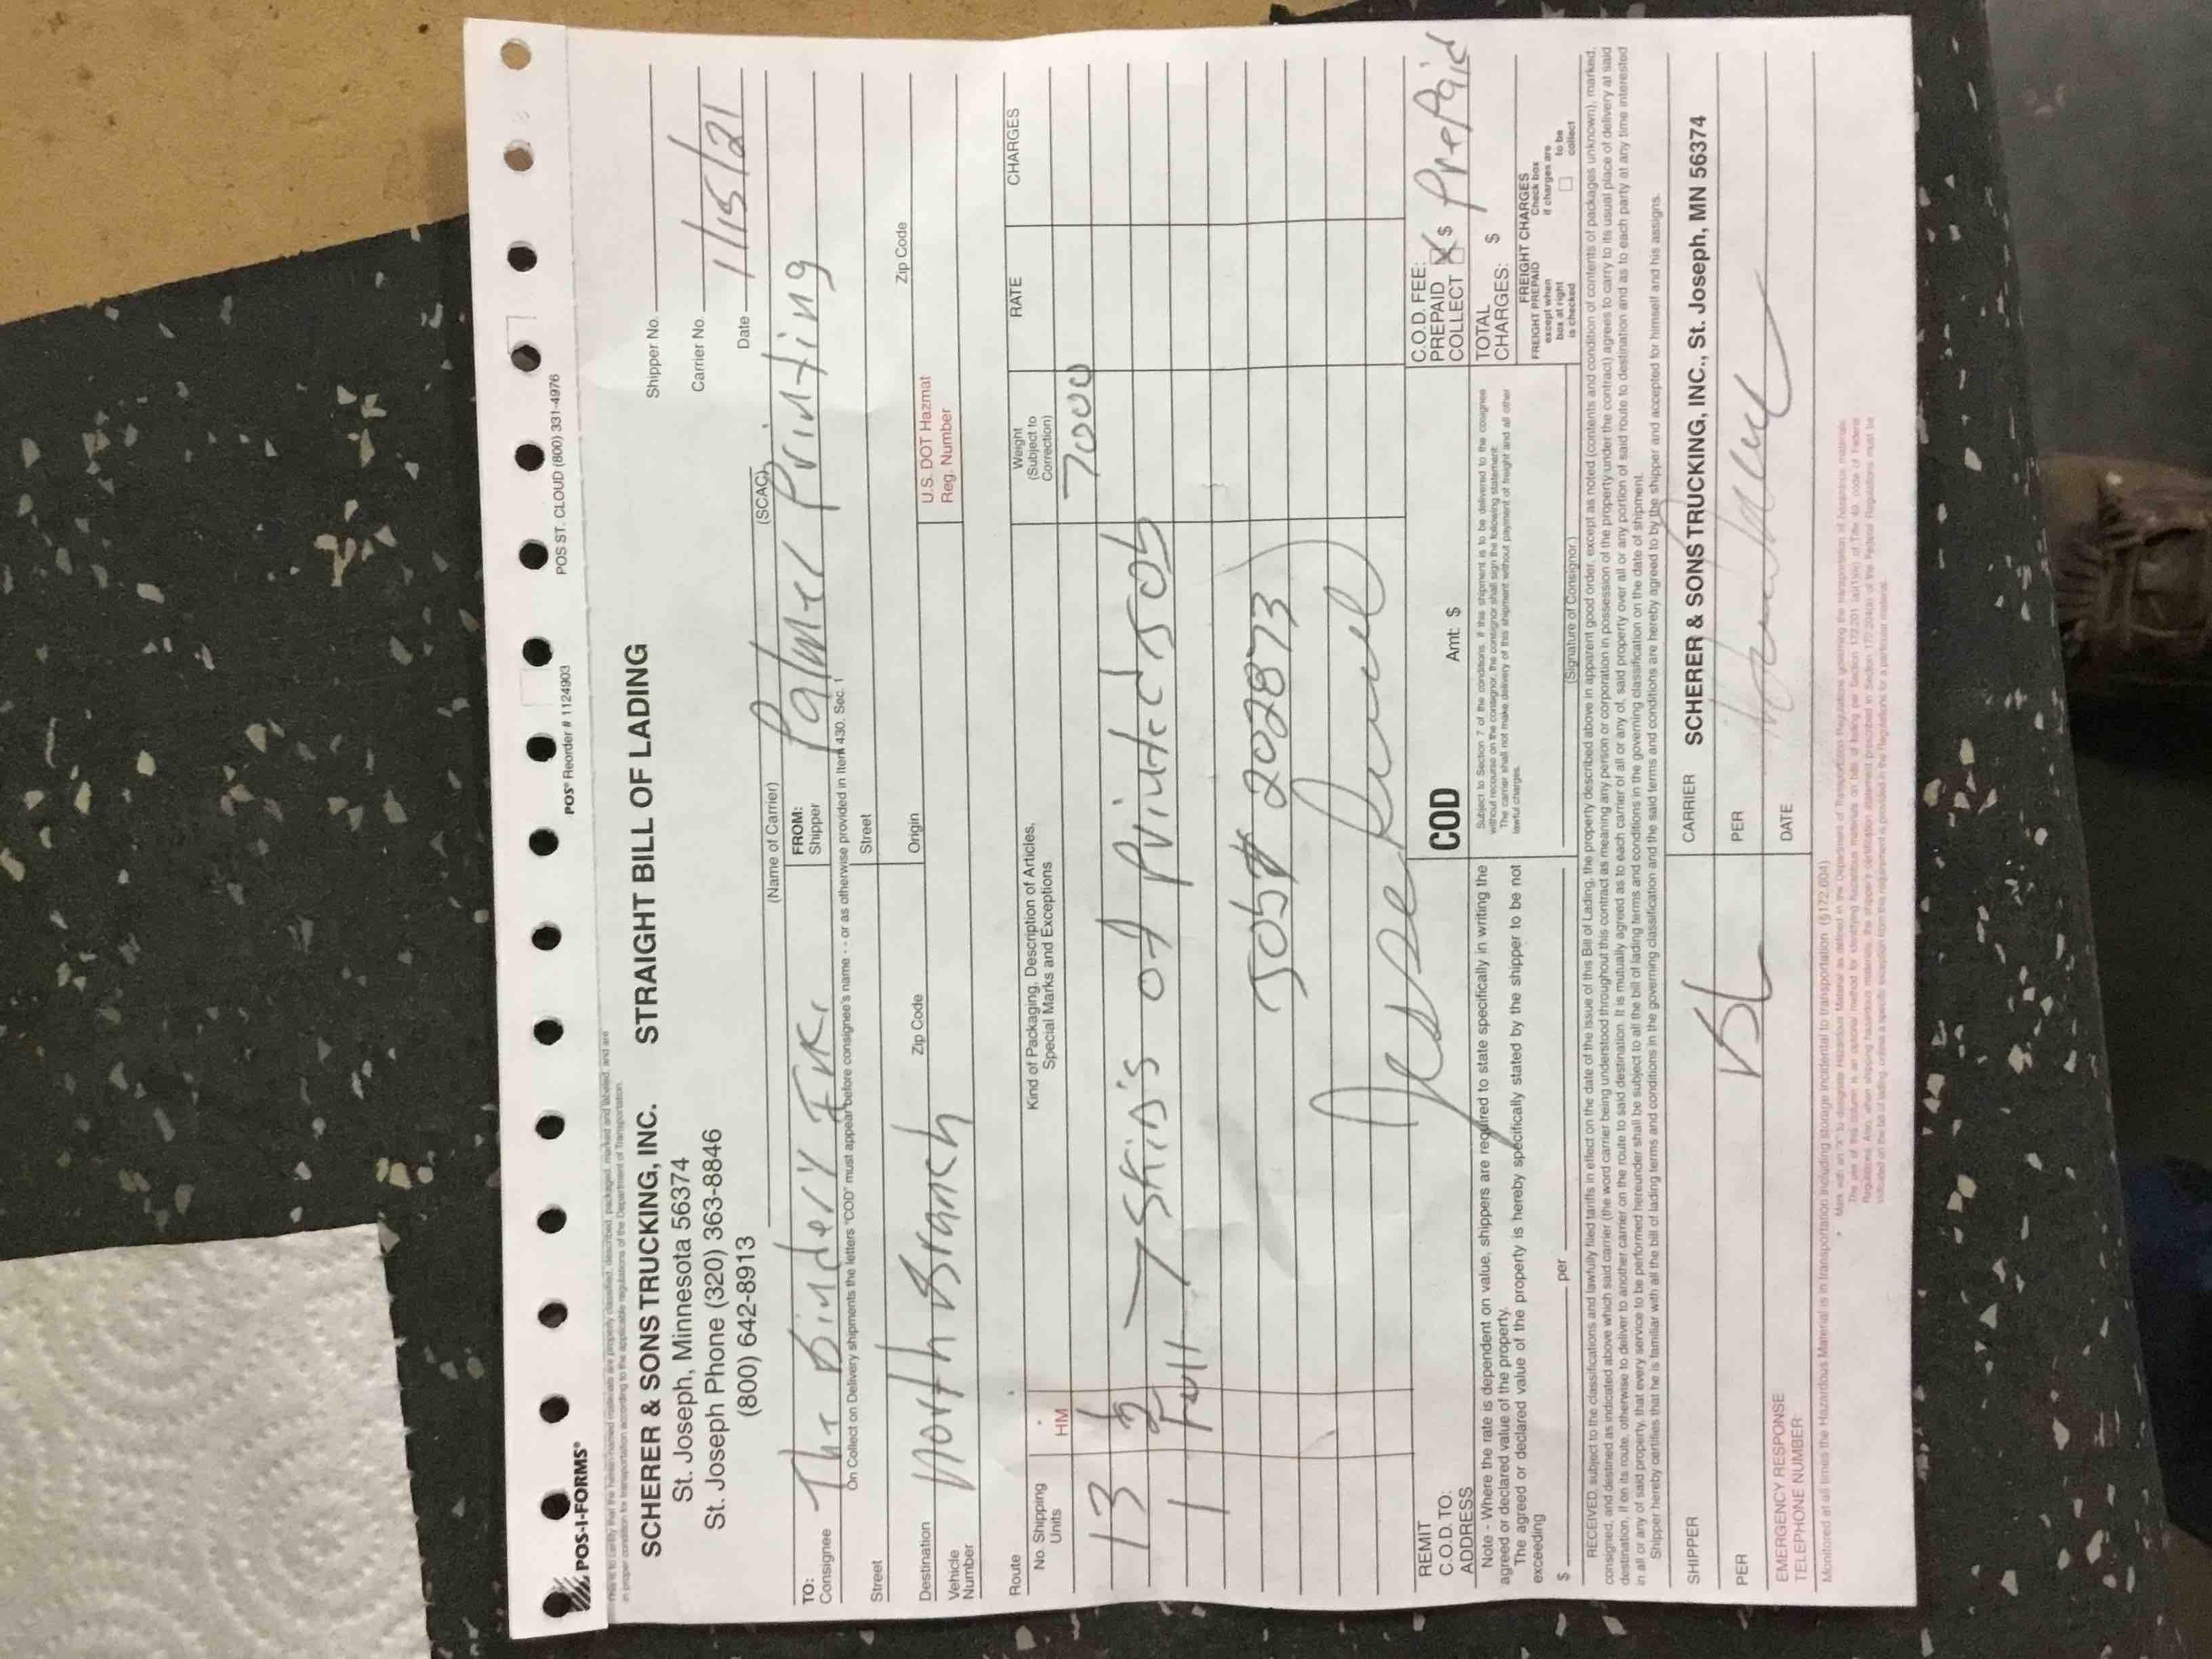 POS-I-FORMS®
POS® Reorder # 1124903
POS ST. CLOUD (800) 331-4976
This is to certify that the herein-named materials are properly classified, described, packaged, marked and labeled, and are
in proper condition for transportation according to the applicable regulations of the Department of Transportation.
SCHERER & SONS TRUCKING, INC.
STRAIGHT BILL OF LADING
St. Joseph, Minnesota 56374
St. Joseph Phone (320) 363-8846
(800) 642-8913
Shipper No.
Carrier No.
Date 1/15/21
(Name of Carrier)
(SCAC)
TO:
Consignee The Bindery
FROM:
Shipper Palmer Printing
On Collect on Delivery shipments the letters "COD" must appear before consignee's name - - or as otherwise provided in Item 430. Sec. 1
Street
Street
Destination North Branch
Zip Code
Origin
Zip Code
Vehicle
Number
U.S. DOT Hazmat
Reg. Number
Route
No. Shipping
Units
* HM
Kind of Packaging, Description of Articles,
Special Marks and Exceptions
Weight
(Subject to
Correction)
RATE
CHARGES
7000
13 Skids of Printed Job
1 Full
Job# 202873
REMIT
C.O.D. TO:
ADDRESS
COD
Amt: $
C.O.D. FEE:
PREPAID
COLLECT X $ PrePaid
Note - Where the rate is dependent on value, shippers are required to state specifically in writing the
agreed or declared value of the property.
The agreed or declared value of the property is hereby specifically stated by the shipper to be not
exceeding
$ per
Subject to Section 7 of the conditions, if this shipment is to be delivered to the consignee
without recourse on the consignor, the consignor shall sign the following statement:
The carrier shall not make delivery of this shipment without payment of freight and all other
lawful charges.
(Signature of Consignor)
TOTAL
CHARGES: $
FREIGHT CHARGES
FREIGHT PREPAID
except when
box at right
is checked
Check box
if charges are
to be
collect
RECEIVED, subject to the classifications and lawfully filed tariffs in effect on the date of the issue of this Bill of Lading, the property described above in apparent good order, except as noted (contents and condition of contents of packages unknown), marked,
consigned, and destined as indicated above which said carrier (the word carrier being understood throughout this contract as meaning any person or corporation in possession of the property under the contract) agrees to carry to its usual place of delivery at said
destination, if on its route, otherwise to deliver to another carrier on the route to said destination. It is mutually agreed as to each carrier of all or any of, said property over all or any portion of said route to destination and as to each party at any time interested
in all or any of said property, that every service to be performed hereunder shall be subject to all the bill of lading terms and conditions in the governing classification on the date of shipment.
Shipper hereby certifies that he is familiar with all the bill of lading terms and conditions in the governing classification and the said terms and conditions are hereby agreed to by the shipper and accepted for himself and his assigns.
SHIPPER
CARRIER SCHERER & SONS TRUCKING, INC., St. Joseph, MN 56374
PER
PER
EMERGENCY RESPONSE
TELEPHONE NUMBER
DATE
Monitored at all times the Hazardous Material is in transportation including storage incidental to transportation (§172.604)
* Mark with an "X" to designate Hazardous Material as defined in the Department of Transportation Regulations governing the transportation of hazardous materials.
The use of this column is an optional method for identifying hazardous materials on bills of lading per Section 172.201 (a)(1)(iii) of Title 49, code of Federal
Regulations. Also, when shipping hazardous materials, the shipper's certification statement prescribed in Section 172.204(a) of the Federal Regulations must be
indicated on the bill of lading, unless a specific exception from this requirement is provided in the Regulations for a particular material.